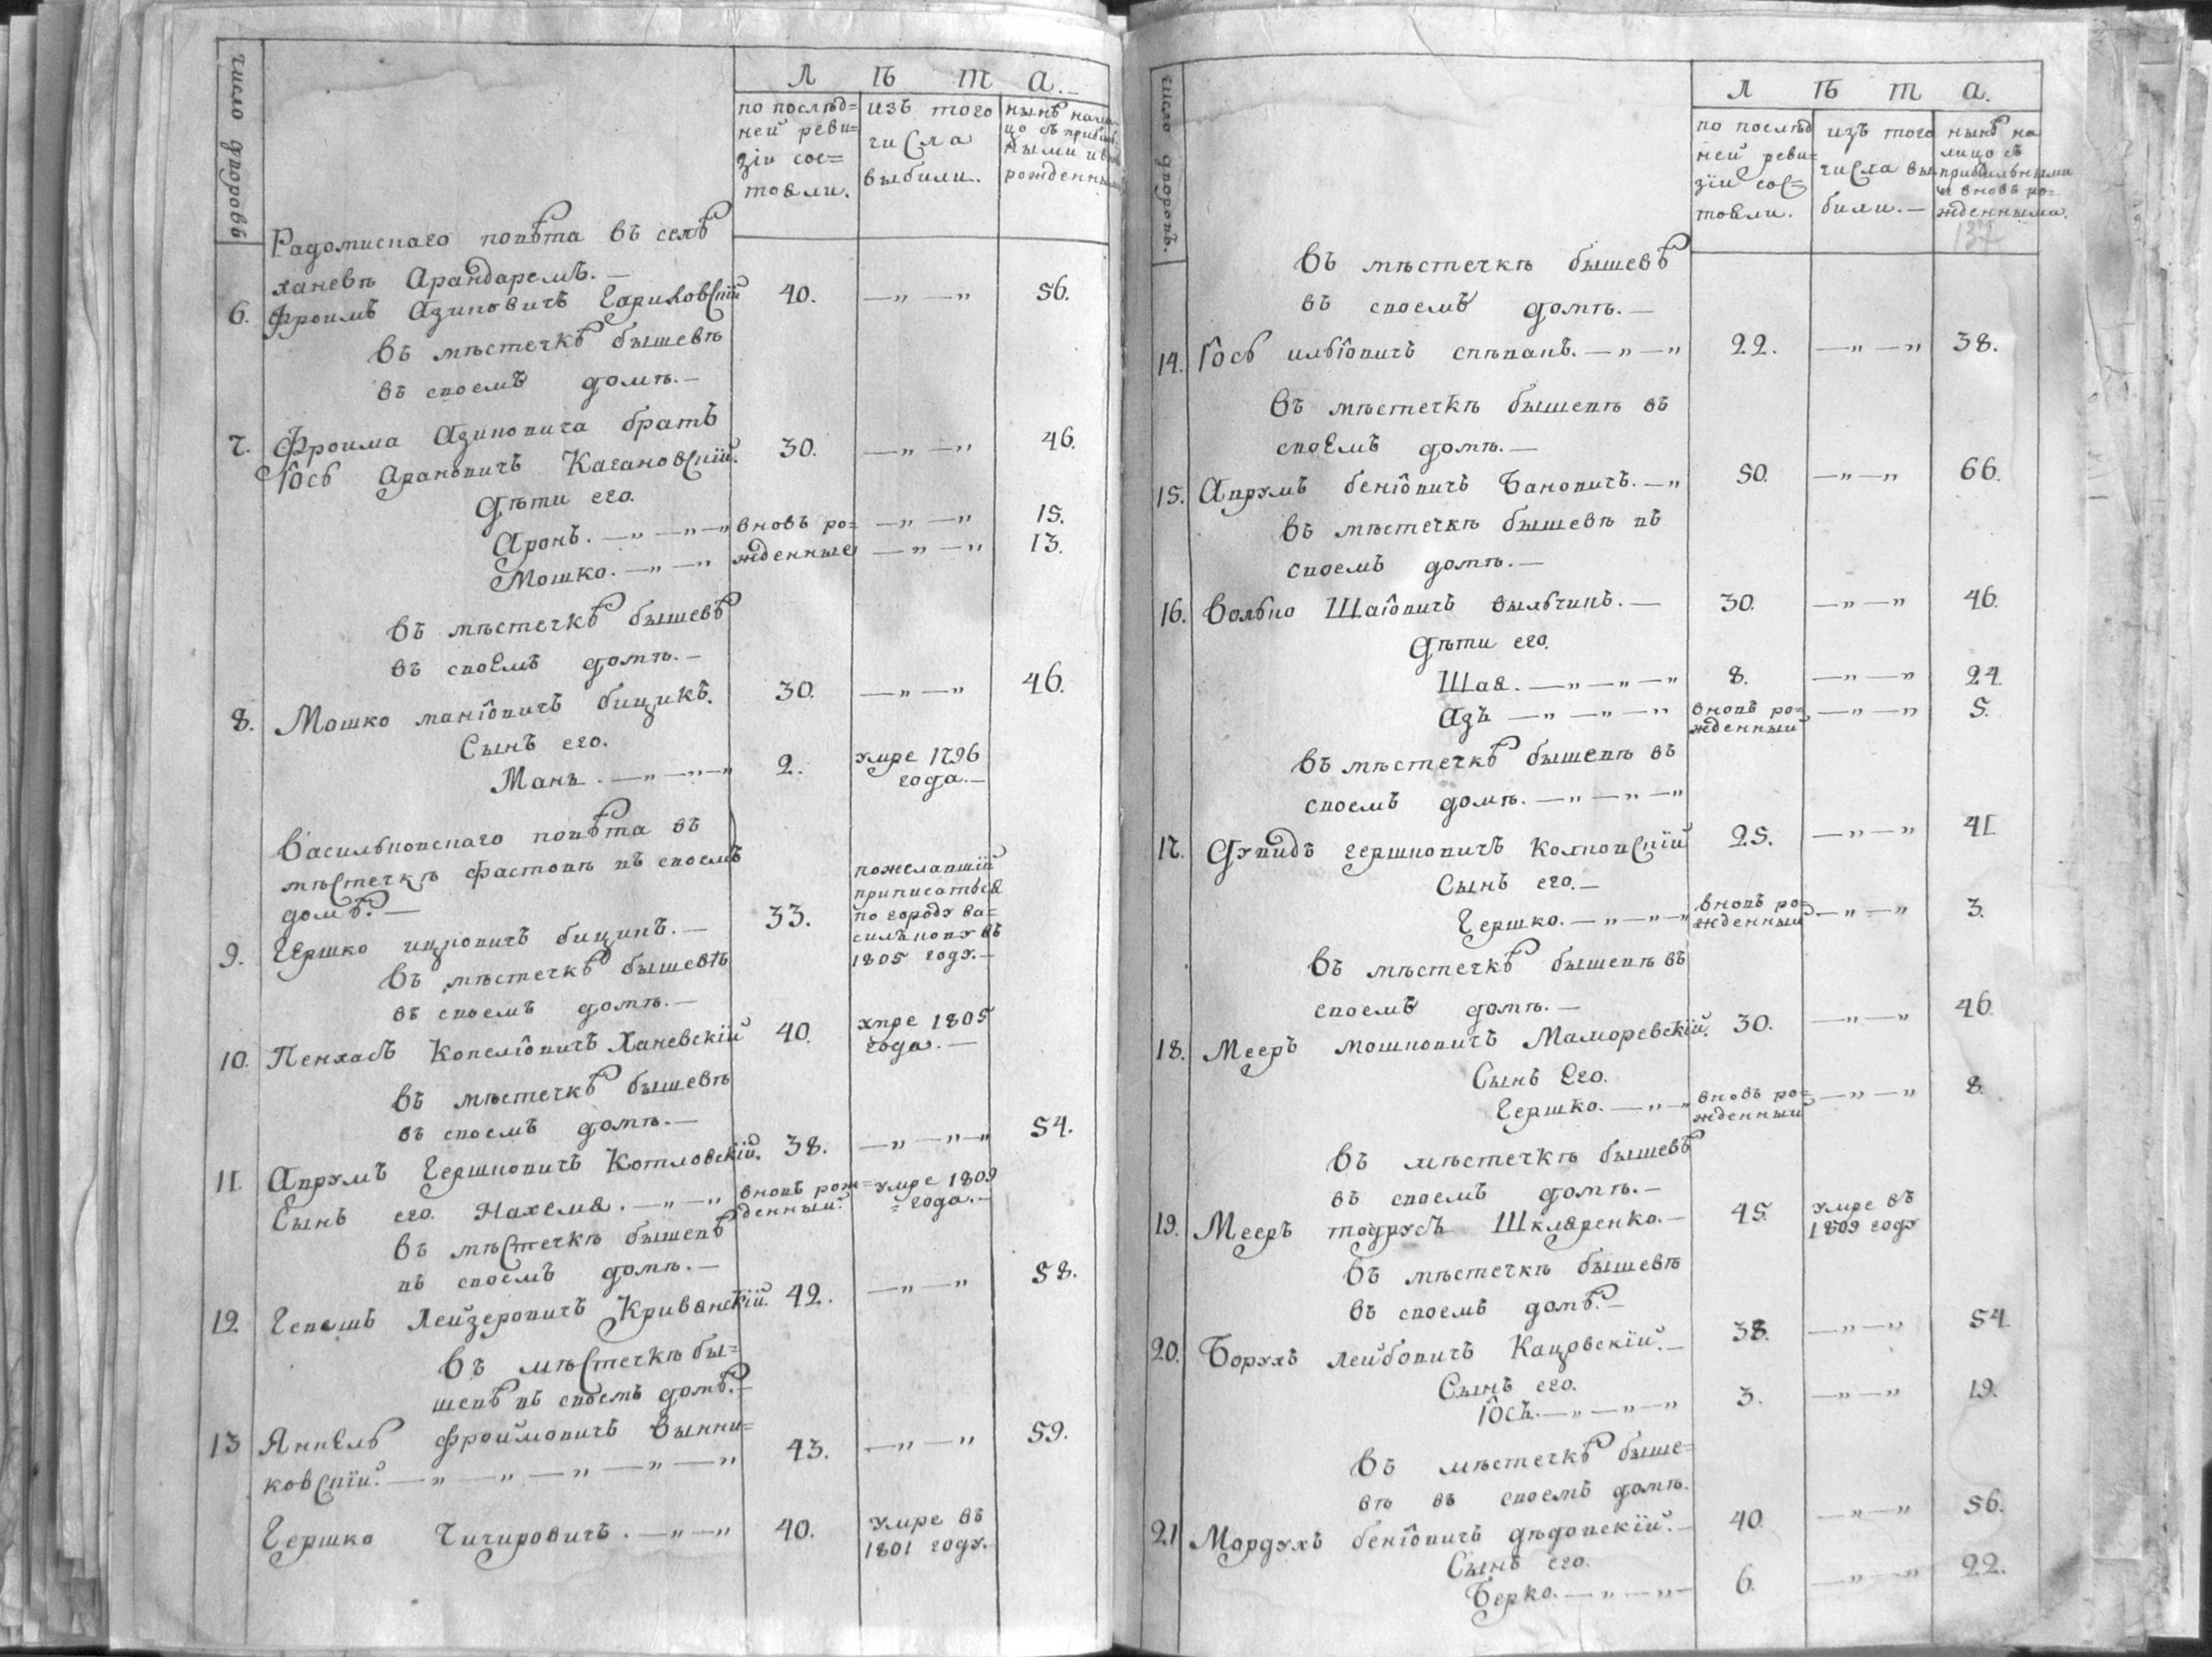 число дворовъ
Л Ѣ Т А.
по послѣд=
ней реви=
зіи сос=
тояли.
изъ того
числа
выбыли.
нынѣ нали
цо съ прибыль
ными и вновь
рожденными
Радомыскаго повѣта въ селѣ
Ханевѣ Арандаремъ.—
6. Фроимъ Азиковичъ 40. —„—„ 56.
въ мѣстечкѣ бышевѣ
въ своемъ домѣ.—
7. Фроима Азиковича братъ
Іось Ароновичъ Кагановскій. 30. —„—„ 46.
Дѣти его.
Аронъ.—„—„—„ вновь ро= —„—„ 15.
Мошко.—„—„ жденные —„—„ 13.
въ мѣстечкѣ бышевѣ
въ своемъ домѣ.—
8. Мошко маніовичъ бицикъ. 30. —„—„ 46.
Сынъ его.
Мань.—„—„—„ 2. умре 1796
года.—
Васильковскаго повѣта въ
мѣстечкѣ фастовѣ въ своемъ
домѣ.—
9. Гершко ицковичъ бицикъ.— 33. пожелавшій
приписаться
по городу ва=
силькову въ
1805 году.—
въ мѣстечкѣ бышевѣ
въ своемъ домѣ.—
10. Пенхасъ Копеліовичъ Ханевскій 40. умре 1805
года.—
въ мѣстечкѣ бышевѣ
въ своемъ домѣ.—
11. Аврумъ Гершковичъ Котловскій. 38. —„—„—„ 54.
Сынъ его. Нахемя.—„—„ вновь рож= умре 1809
денный. =года.—
въ мѣстечкѣ бышевѣ
въ своемъ домѣ.—
12 Лейзеровичъ Кривянскій. 42. —„—„ 58.
въ мѣстечкѣ бы=
шевѣ въ своемъ домѣ.—
13 Янкель Фроимовичъ Вынни=
ковскій.—„—„—„—„—„ 43. —„—„ 59.
Гершко Чичировичъ.—„—„ 40. умре въ
1801 году.
число дворовъ.
Л Ѣ Т А.
по послѣд
ней реви=
зіи сос=
тояли.
изъ того
числа вы
были.—
нынѣ на
лицо съ
прибыльными
и вновь ро=
жденными.
137
въ мѣстечкѣ бышевѣ
въ своемъ домѣ.—
14. Іось ильіовичъ спѣвакъ.—„—„ 22. —„—„ 38.
въ мѣстечкѣ бышевѣ въ
своемъ домѣ.—
15. Аврумъ беніовичъ Бановичъ.—„ 50. —„—„ 66.
въ мѣстечкѣ бышевѣ въ
своемъ домѣ.—
16. Волько Шаіовичъ вильчикъ.— 30. —„—„ 46.
Дѣти его.
Шая.—„—„—„ 8. —„—„ 24
Азъ—„—„—„ вновь ро=
жденный —„—„ 5.
въ мѣстечкѣ бышевѣ въ
своемъ домѣ.—„—„—„
17. Дувидъ гершковичъ Колновскій 25. —„—„ 41
Сынъ его.—
Гершко.—„—„—„ вновь ро=
жденный —„—„ 3.
въ мѣстечкѣ бышевѣ въ
своемъ домѣ.—
18. Мееръ мошковичъ Маморевскій. 30. —„—„ 46.
Сынъ Его.
Гершко.—„—„ вновь ро=
жденный —„—„ 8.
въ мѣстечкѣ бышевѣ
въ своемъ домѣ.—
19. Мееръ тодрусъ Шкляренко.— 45. умре въ
1809 году
въ мѣстечкѣ бышевѣ
въ своемъ домѣ.—
20. Борухъ лейбовичъ Кацовскій.— 38. —„—„ 54.
Сынъ его.
Іось.—„—„—„ 3. —„—„ 19.
въ мѣстечкѣ быше=
вѣ въ своемъ домѣ.
21 Мордухъ беніовичъ дѣдовскій.— 40. —„—„ 56.
Сынъ его.
Берко.—„—„— 6. —„—„ 22.